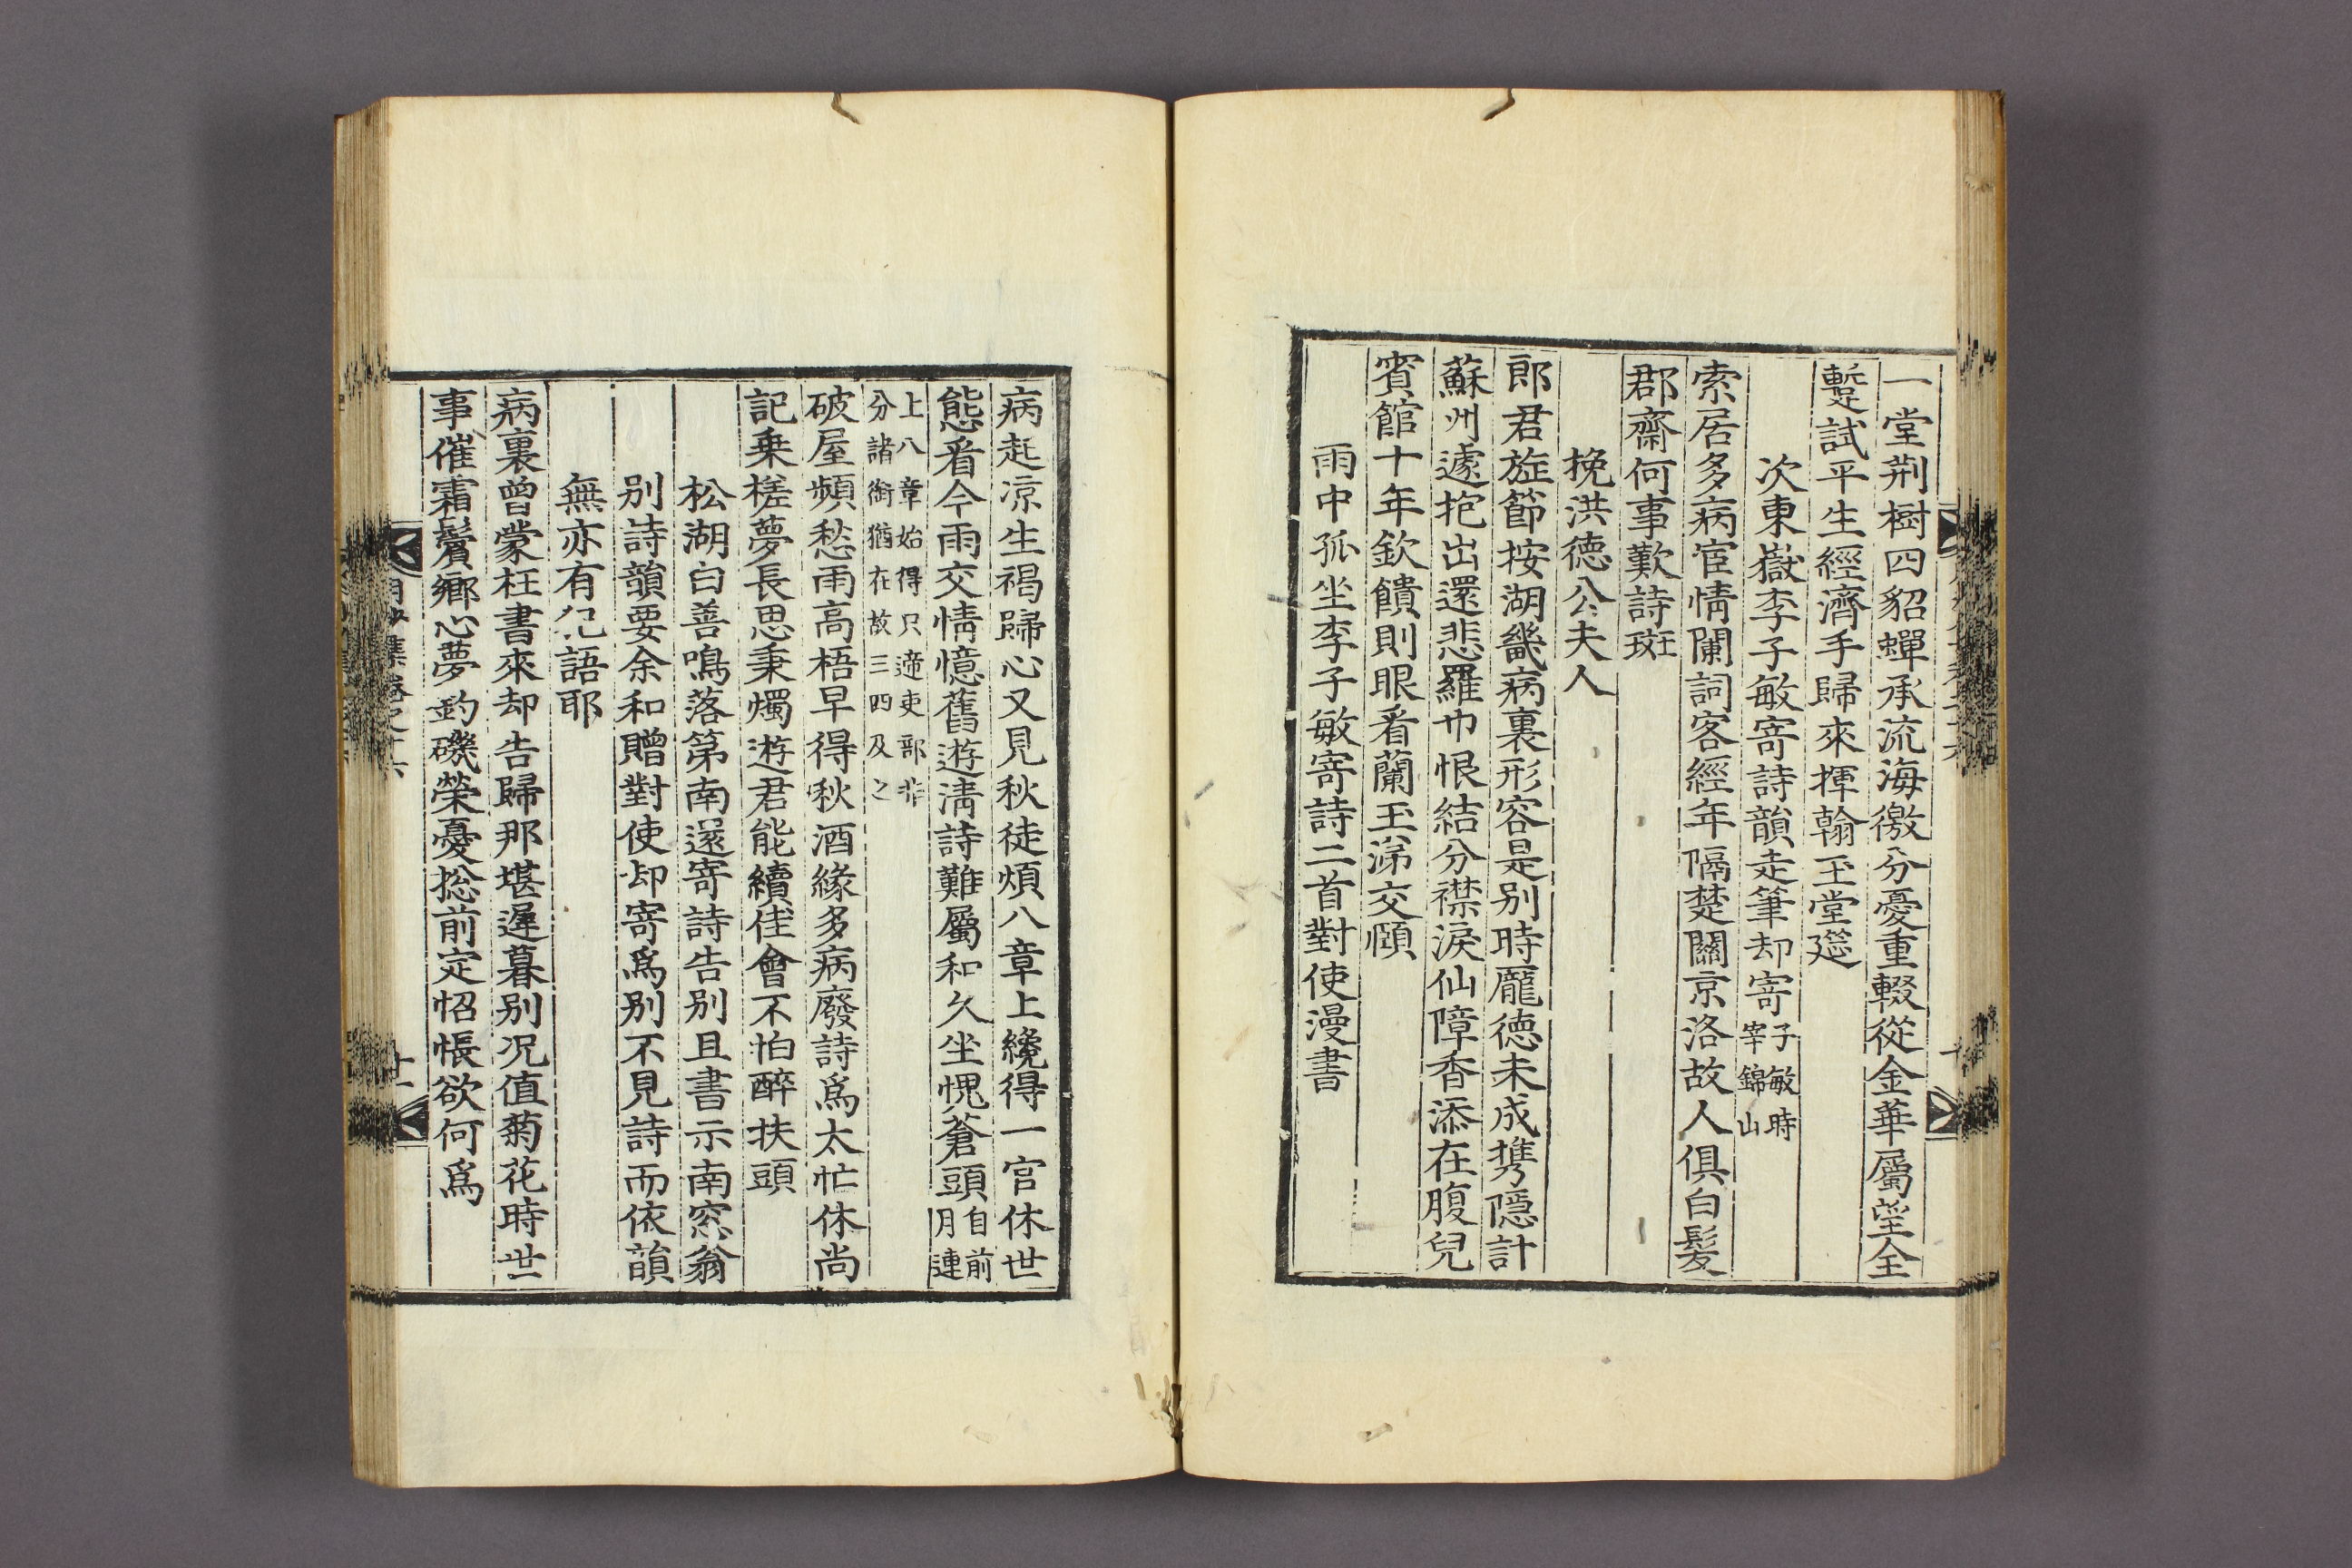 一堂荆樹四貂蟬承流海徼分憂重輟從金華屬望全
蹔試平生經濟手歸來揮翰玉堂筵
次東嶽李子敏寄詩韻走筆却寄子敏時
宰錦山
索居多病宦情闌詞客經年隔楚關京洛故人俱白髪
郡齋何事歎詩斑
挽洪德公夫人
郎君旌節按湖畿病裏形容是别時龐德未成携隱計
蘇州遽抱出還悲羅巾恨結分襟淚仙障香添在腹兒
賓館十年欽饋則眼看蘭玉涕交頤
雨中孤坐李子敏寄詩二首對使漫書
病起凉生褐歸心又見秋徒煩八章上纔得一官休世
態看今雨交情憶舊遊淸詩難屬和久坐愧蒼頭自前
月連
上八章始得只遞吏部非
分諸銜猶在故三四及之
破屋頻愁雨高梧早得秋酒緣多病廢詩爲太忙休尚
記乗槎夢長思秉燭遊君能續佳會不怕醉扶頭
松湖白善鳴落第南還寄詩告别且書示南窓翁
别詩韻要余和贈對使却寄爲别不見詩而依韻
無亦有乩語耶
病裏曾蒙枉書來却告歸那堪遲暮别况值菊花時世
事催霜鬢鄕心夢釣磯榮憂摠前定怊悵欲何爲
月沙集卷之十六
十一